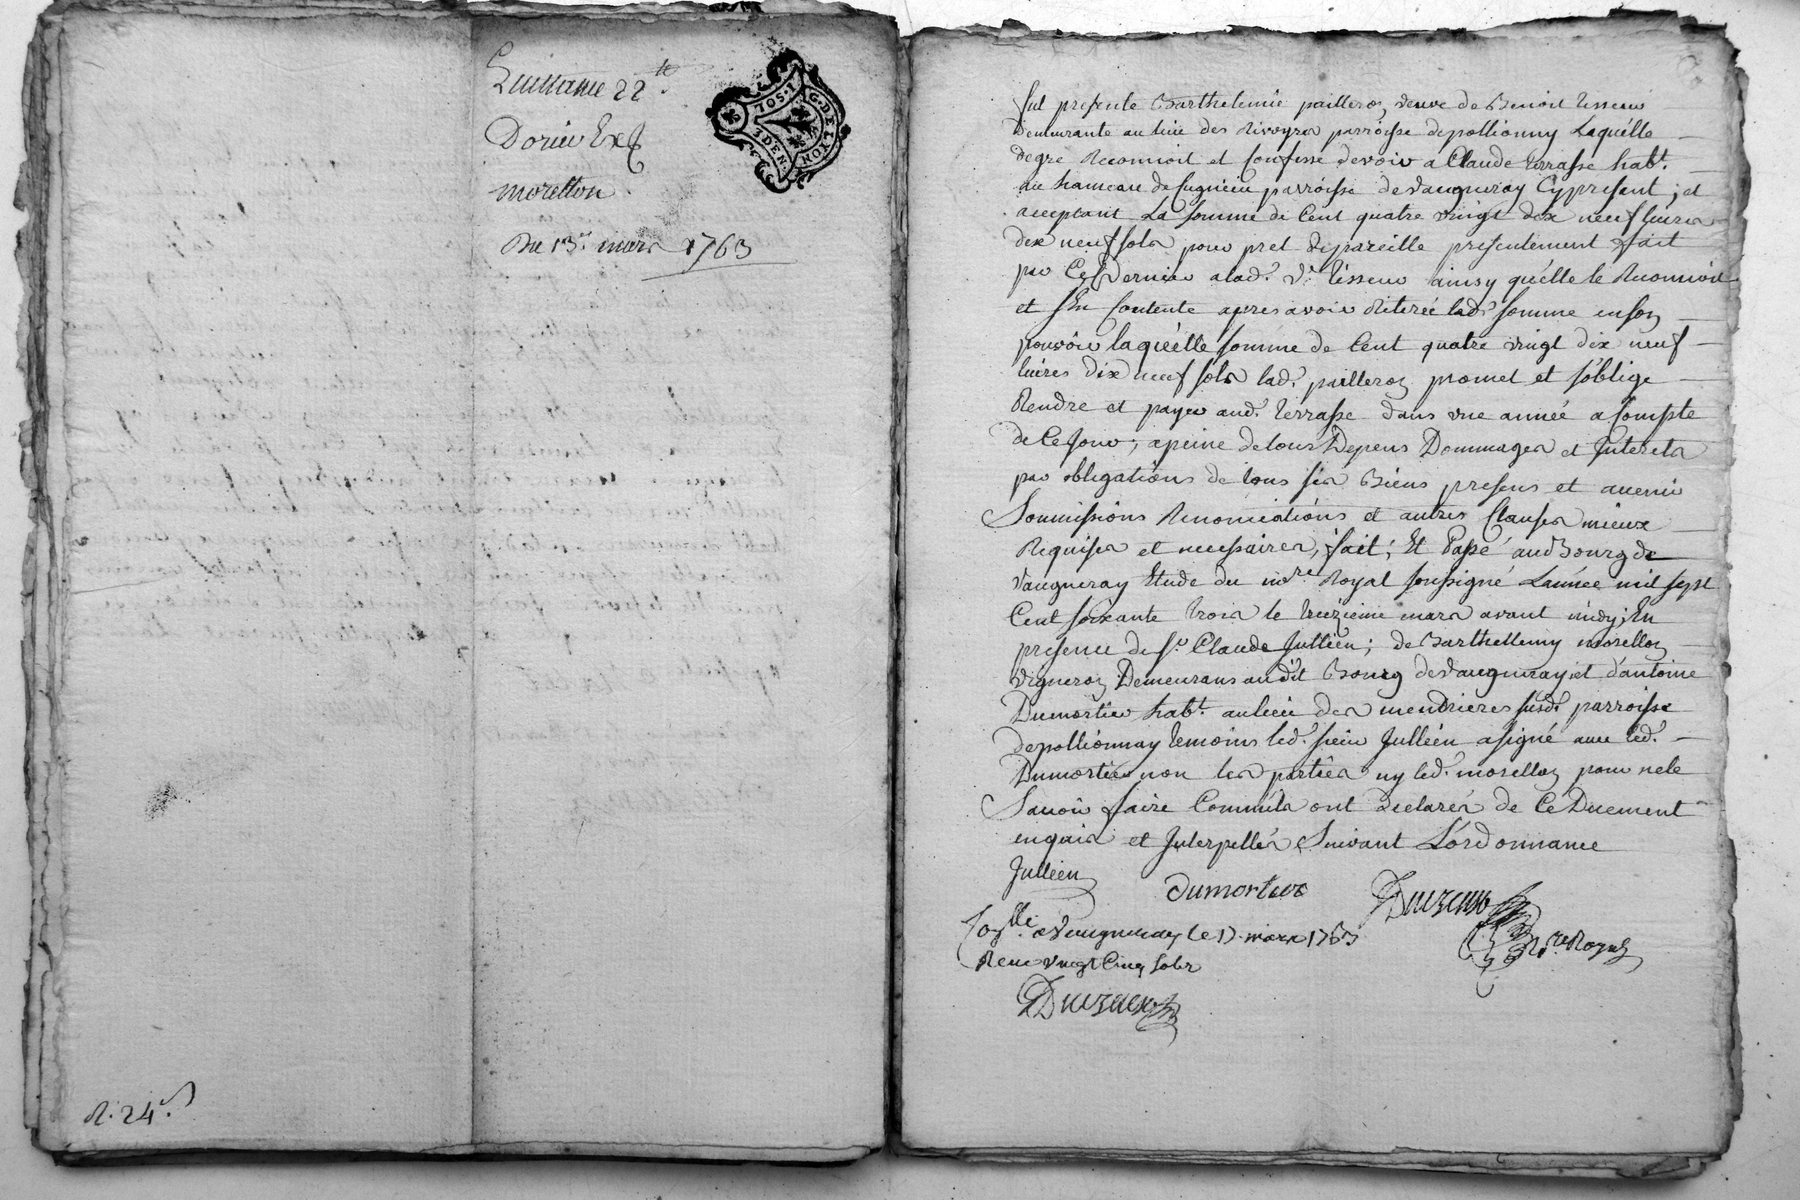 Quittance 22.tt
Dorieu Ex
morellon
Du 13.e mars 1763
I.SOL
G.DE LYON
.DEN.
R. 24.s
fut presente Barthelemie pailleron veuve de Benoit tisseur
demeurante au lieu des Rivoyres parroisse depollionny Laquelle
degre Reconnoit et Confesse devoir a Claude terrasse habt.
au hameau de parroisse devaugneray Cypresent ; et
acceptant La somme de Cent quatre vingt dix neuf livres
dix neuf sols pour pret depareille presentement fait
par Cedernier alad. ve. tisseur ainsy quelle le Reconnoit
et sEn Contente apres avoir Retirée lad. somme enson
pouvoir laquelle somme de Cent quatre vingt dix neuf
livres dix neuf sols lad. pailleron promet et soblige
Rendre et payer aud. terrasse dans une année a Compte
de Ce Jour ; apeine detous Depens Dommages et Interets
par obligations de tous ses Biens presens et avenir
Soumissions Renonciations et autres Clauses mieux
Requises et necessaires, fait ; Et Passé audBourg de
vaugneray Etude du nore. Royal soussigné Lannée mil sept
Cent soixante trois le treizieme mars avant midy ; En
presence de sr. Claude Jullien ; de Barthellemy morellon
vigneron Demeurans audit Bourg devaugneray et dantoine
Dumortier habt. aulieu des mendrieres susd. parroisse
depollionnay temoins led. sieur Jullien asigné avec led.
Dumortier non les parties ny led. morellon pour nele
Savoir faire Comme ils ont declarés de Ce Duement
enquis et Interpellés Suivant L'ordonnance
Jullien
dumortier
Nre. Royal
Conlle. a vaugneray le 17 mars 1763
Reçu vingt Cinq sols